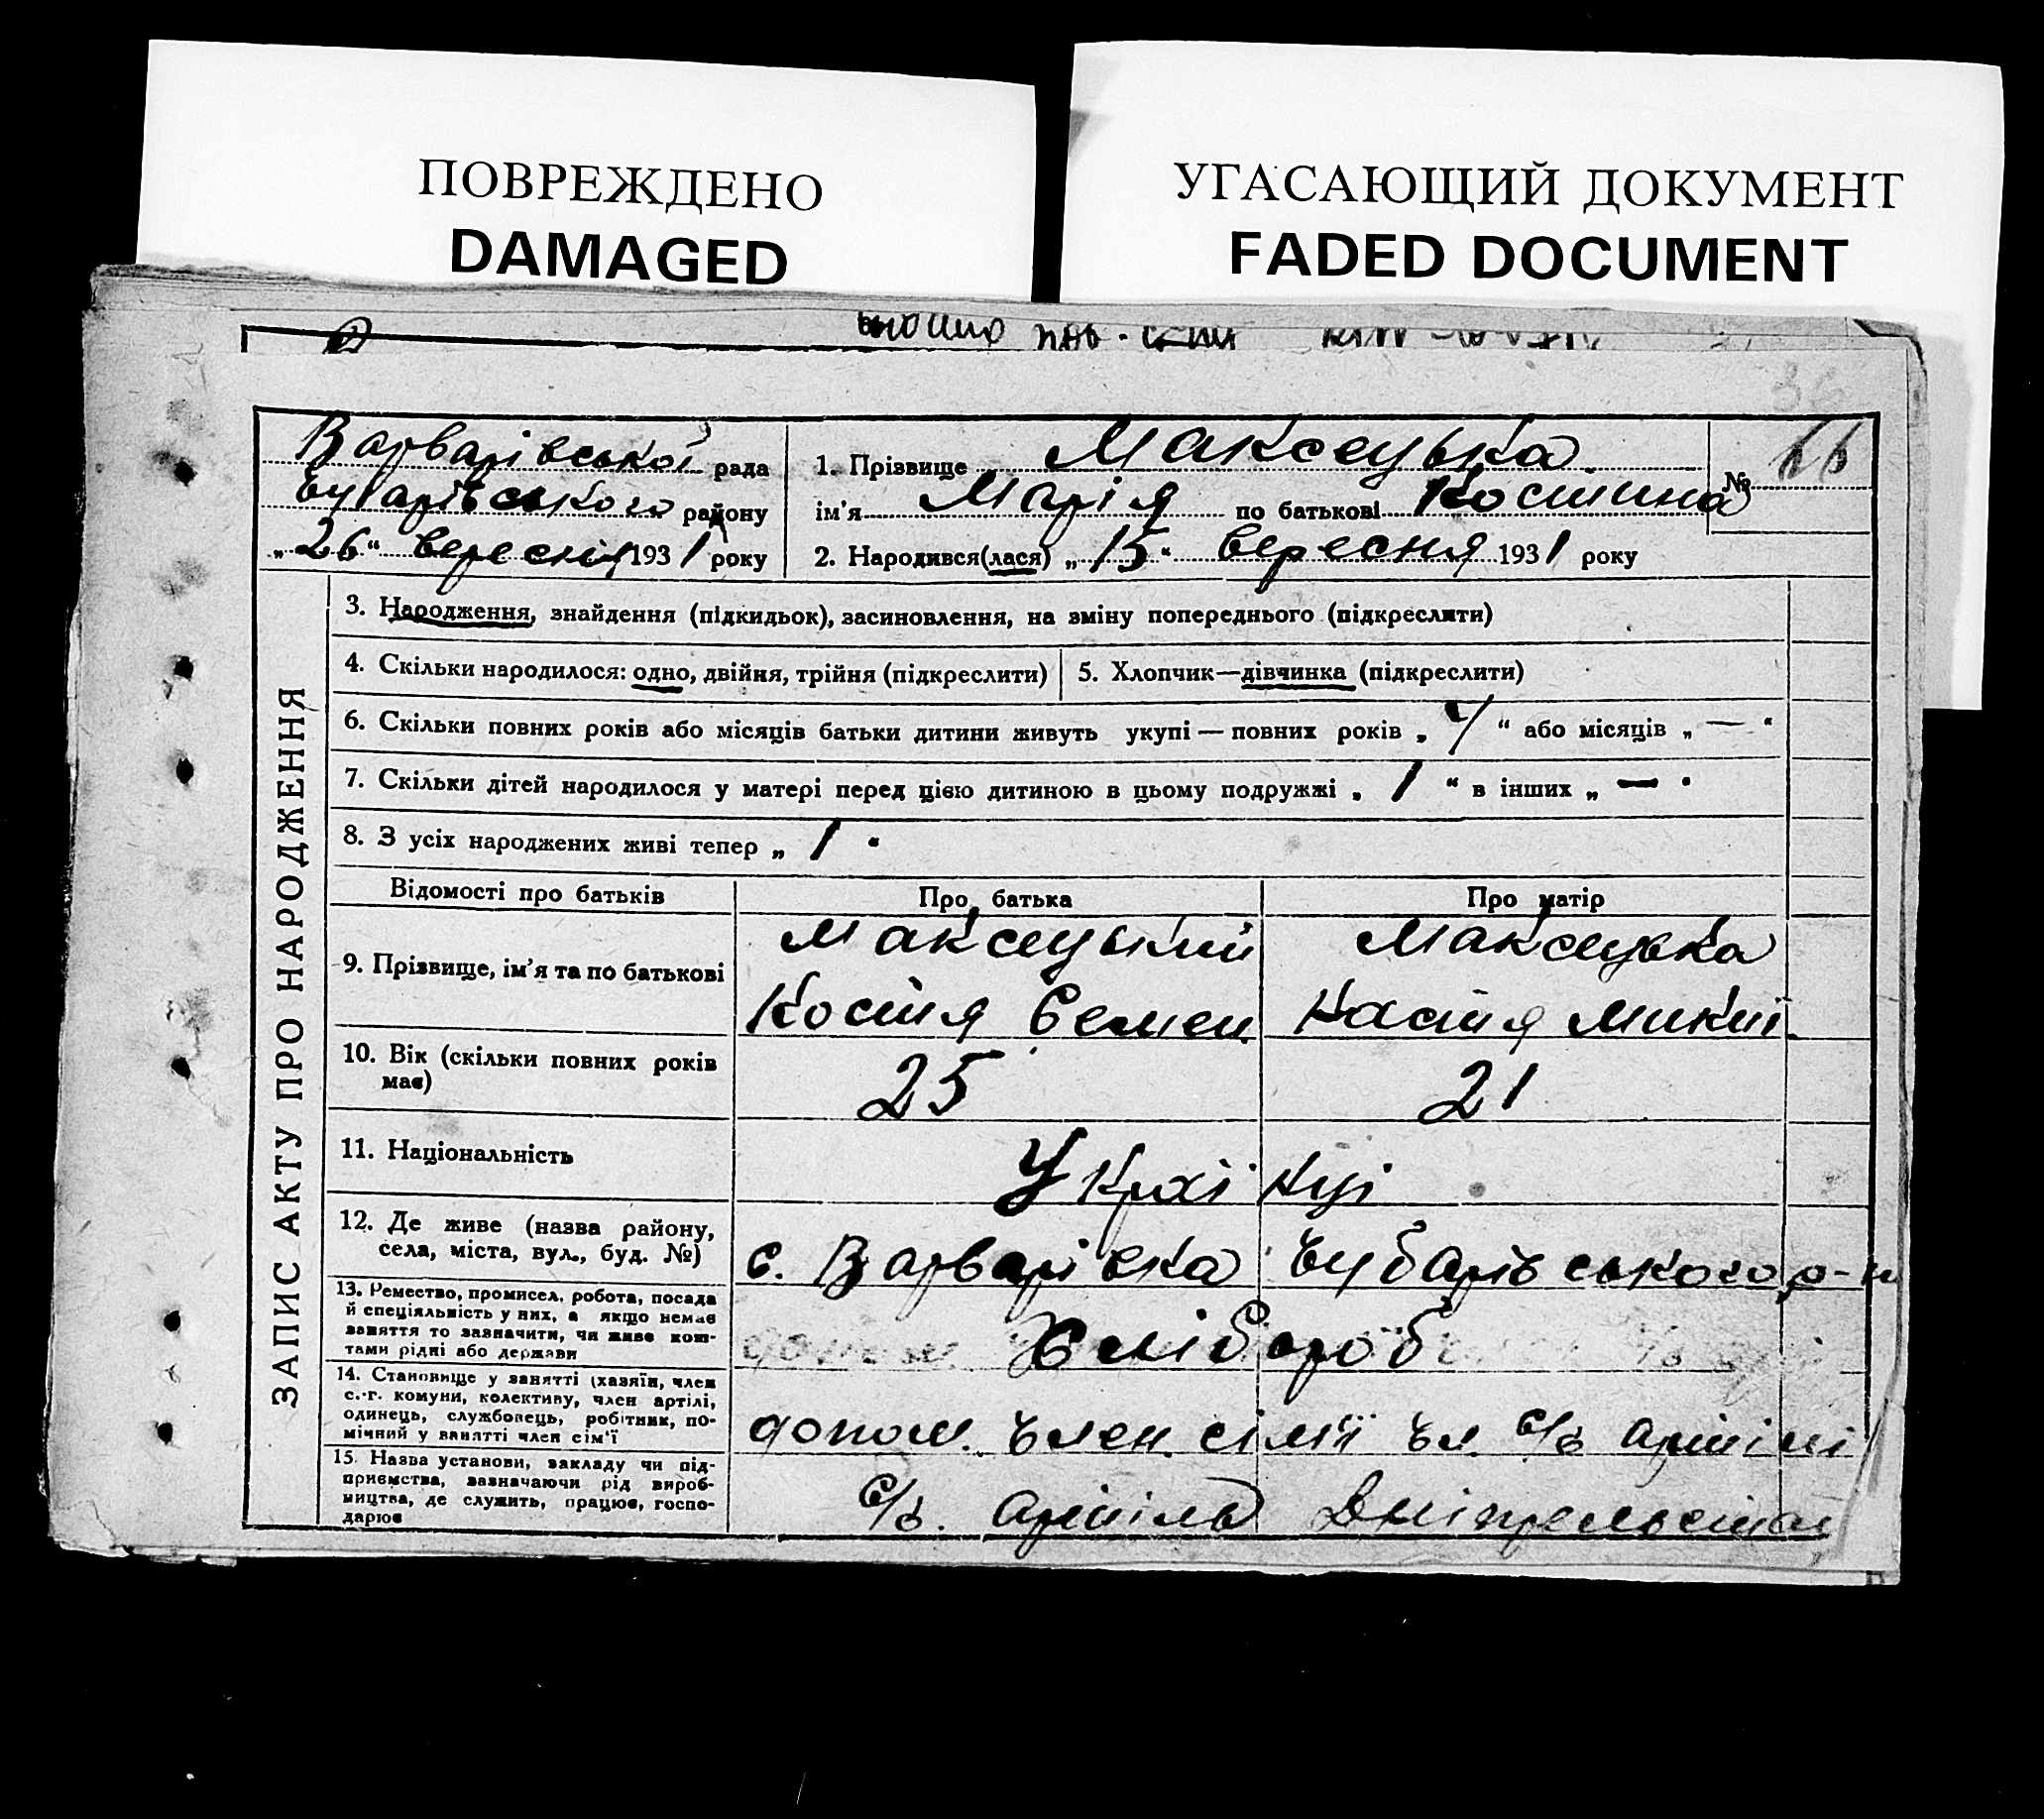 ПОВРЕЖДЕНО
DAMAGED
УГАСАЮЩИЙ ДОКУМЕНТ
FADED DOCUMENT
36
Варварівської рада
Чубарівського району
„26“ вересня 1931 року
1. Прізвище Максецька
№ 66
ім'я Марія по батькові Костина
2. Народився(лася) „15“ вересня 1931 року
ЗАПИС АКТУ ПРО НАРОДЖЕННЯ
3. Народження, знайдення (підкидьок), засиновлення, на зміну попереднього (підкреслити)
4. Скільки народилося: одно, двійня, трійня (підкреслити)
5. Хлопчик—дівчинка (підкреслити)
6. Скільки повних років або місяців батьки дитини живуть укупі — повних років „ “ або місяців „ — “
7. Скільки дітей народилося у матері перед цією дитиною в цьому подружжі „ 1 “ в інших „ — “
8. З усіх народжених живі тепер „ 1 “
Відомості про батьків
Про батька
Про матір
9. Прізвище, ім'я та по батькові
Максецький
Костя Семен.
Максецька
Настя Микит.
10. Вік (скільки повних років
має)
25
21
11. Національність
Українці
12. Де живе (назва району,
села, міста, вул., буд. №)
с. Варварівка Чубарівського р-н
13. Ремество, промисел, робота, посада
й спеціяльність у них, а якщо немає
заняття то зазначити, чи живе кош-
тами рідні або держави
Хлібороб
14. Становище у занятті (хазяїн, член
с.-г. комуни, колективу, член артілі,
одинець, службовець, робітник, по-
мічний у занятті член сім'ї
допом. член сімї чл. с/г артілі
15. Назва установи, закладу чи під-
приємства, зазначаючи рід вироб-
ництва, де служить, працює, госпо-
дарює
с/г. артіль Дніпрельстан